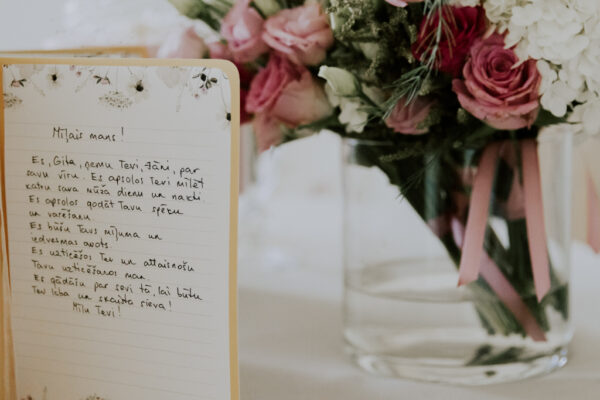 Mīļais mans!
Es, Gita, ņemu Tevi, Jāni, par
savu vīru. Es apsolos Tevi mīlēt
katru sava mūža dienu un nakti.
Es apsolos godāt Tavu spēku
un varēšanu.
Es būšu Tavs mīļuma un
iedvesmas avots.
Es uzticēšos Tev un attaisnošu
Tavu uzticēšanos man.
Es gādāšu par sevi tā, lai būtu
Tev laba un skaista sieva!
Mīlu Tevi!